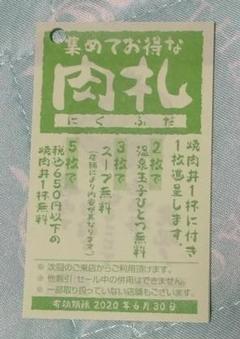 集めてお得な
肉札
にくふだ
焼肉丼1杯に付き
1枚進呈します。
2枚で
温泉玉子ひとつ無料
3枚で
スープ無料
(店舗により内容が異なります)
5枚で
税込650円以下の
焼肉丼1杯無料
※次回のご来店からご利用頂けます。
※他割引・セール中の併用はできません。
※一部取り扱っていない店舗もございます。
有効期限 2020年6月30日